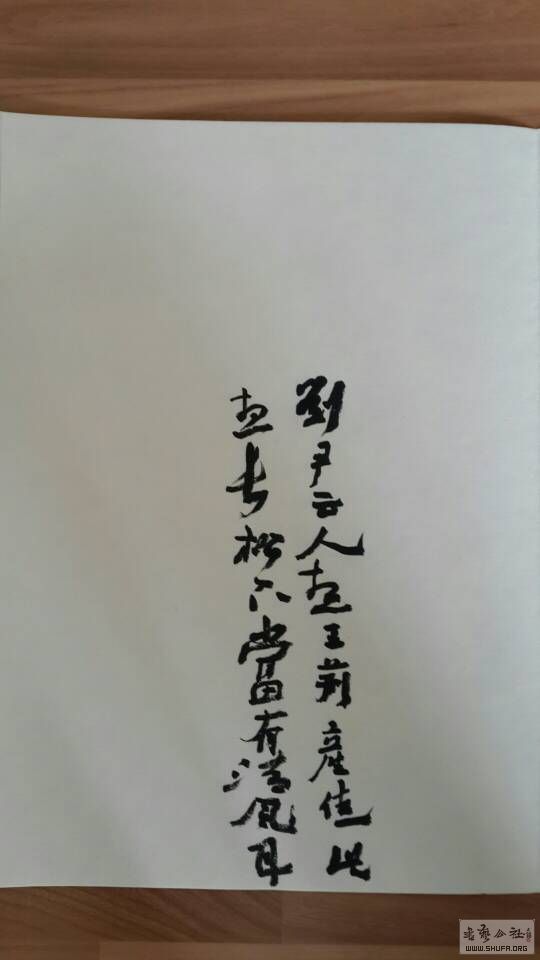 劉尹云人想王荊產佳此
想長松下當有清風耳
書藝公社
WWW.SHUFA.ORG